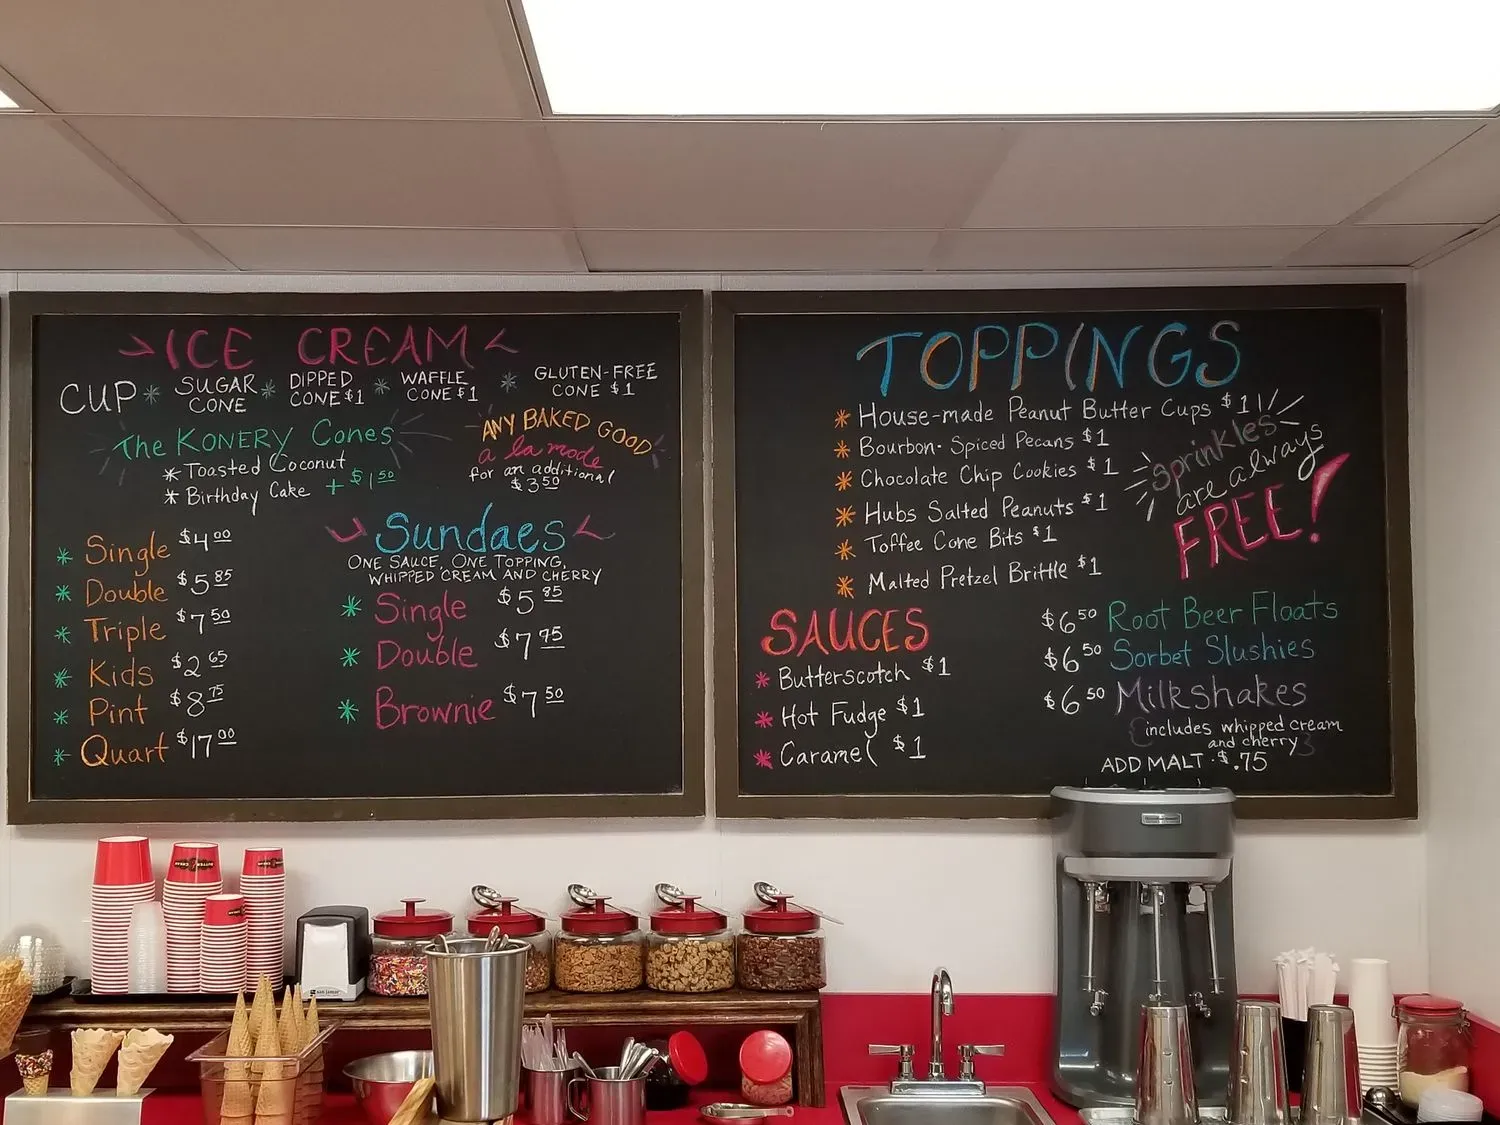 ICE CREAM
CUP * SUGAR CONE * DIPPED CONE $1 * WAFFLE CONE $1 * GLUTEN-FREE CONE $1
The KONERY Cones
* Toasted Coconut
* Birthday Cake + $1.50
ANY BAKED GOOD
a la mode
for an additional
$3.50
* Single $4.00
* Double $5.85
* Triple $7.50
* Kids $2.65
* Pint $8.75
* Quart $17.00
Sundaes
ONE SAUCE, ONE TOPPING,
WHIPPED CREAM AND CHERRY
* Single $5.85
* Double $7.75
* Brownie $7.50
TOPPINGS
* House-made Peanut Butter Cups $1
* Bourbon-Spiced Pecans $1
* Chocolate Chip Cookies $1
* Hubs Salted Peanuts $1
* Toffee Cone Bits $1
* Malted Pretzel Brittle $1
Sprinkles
are always
FREE!
SAUCES
* Butterscotch $1
* Hot Fudge $1
* Caramel $1
$6.50 Root Beer Floats
$6.50 Sorbet Slushies
$6.50 Milkshakes
{includes whipped cream
and cherry}
ADD MALT - $.75